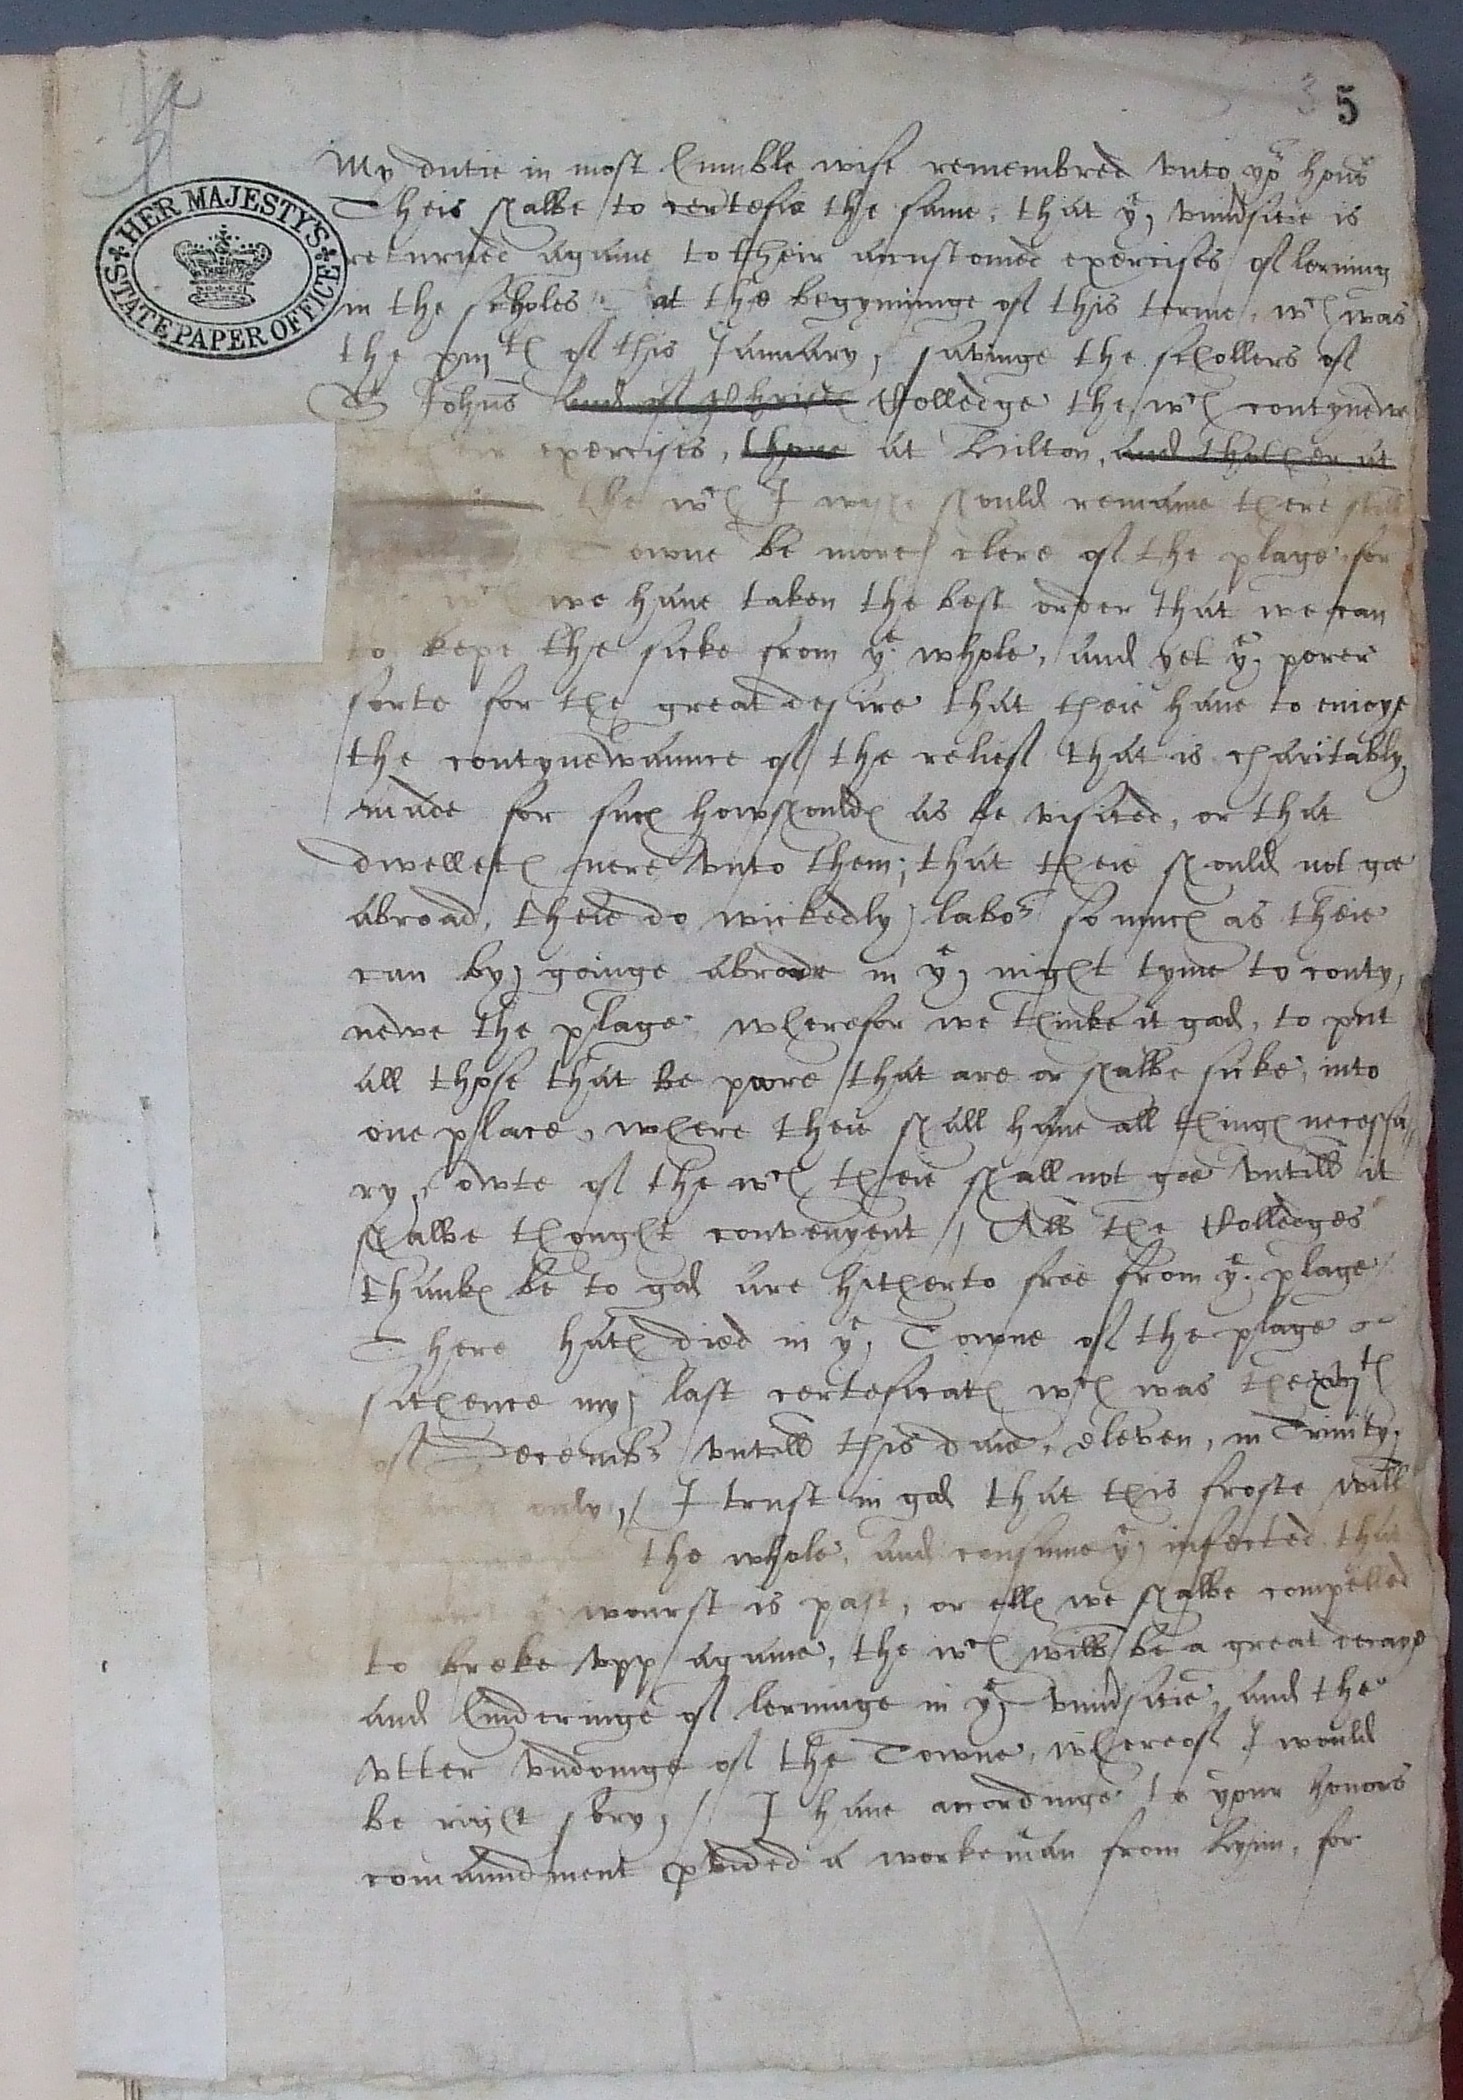 5
HER MAJESTY'S
STATE PAPER OFFICE
My dutie in most humble wise remembred vnto yor honor
Theis shalbe to certefie the same, that ye vniũsitie is
returned againe to their accustomed exercises of lerning
in the scholes at the begynninge of this terme, wch was
the xiijth of this January, savinge the schollers of
St Johns and of Christs Colledge the wch contynewe
their exercises, thone at Milton, and thother at
the wch I wishe should remaine there still
Towne be more clere of the plage for
wch we haue taken the best order that we can
to kepe the sicke from ye whole, and yet ye porer
sorte for the great desire that theie haue to enioye
the contynewaunce of the relief that is charitably
made for such howshouldes as be visited, or that
dwelleth nere vnto them; that theie should not goe
abroad, theie do wickedly labor so much as theie
can by goinge abrode in ye night tyme to conty,
newe the plage. wherefor we thinke it good, to put
all those that be poore that are or shalbe sicke, into
one place, where theie shall haue all thinges necessa//
ry, owte of the wch theie shall not goe vntill it
shalbe thought convenyent // All the Colledges
thankes be to god are hitherto free from ye plage
There hath died in ye Towne of the plage
sithence my last certeficath wch was the xvjth
of Decembr vntill this daie, eleven, in Trinity
only, // I trust in god that this froste will
the whole, and consume ye infected that
wourst is past, or elles we shalbe compelled
to breke vpp againe, the wch will be a great decaye
and hinderinge of lerninge in ye vniũsitie, and the
vtter vndoinge of the Towne, whereof I would
be right sory, // I haue accordinge to your honors
commaundment pvided a workeman from Lynn, for